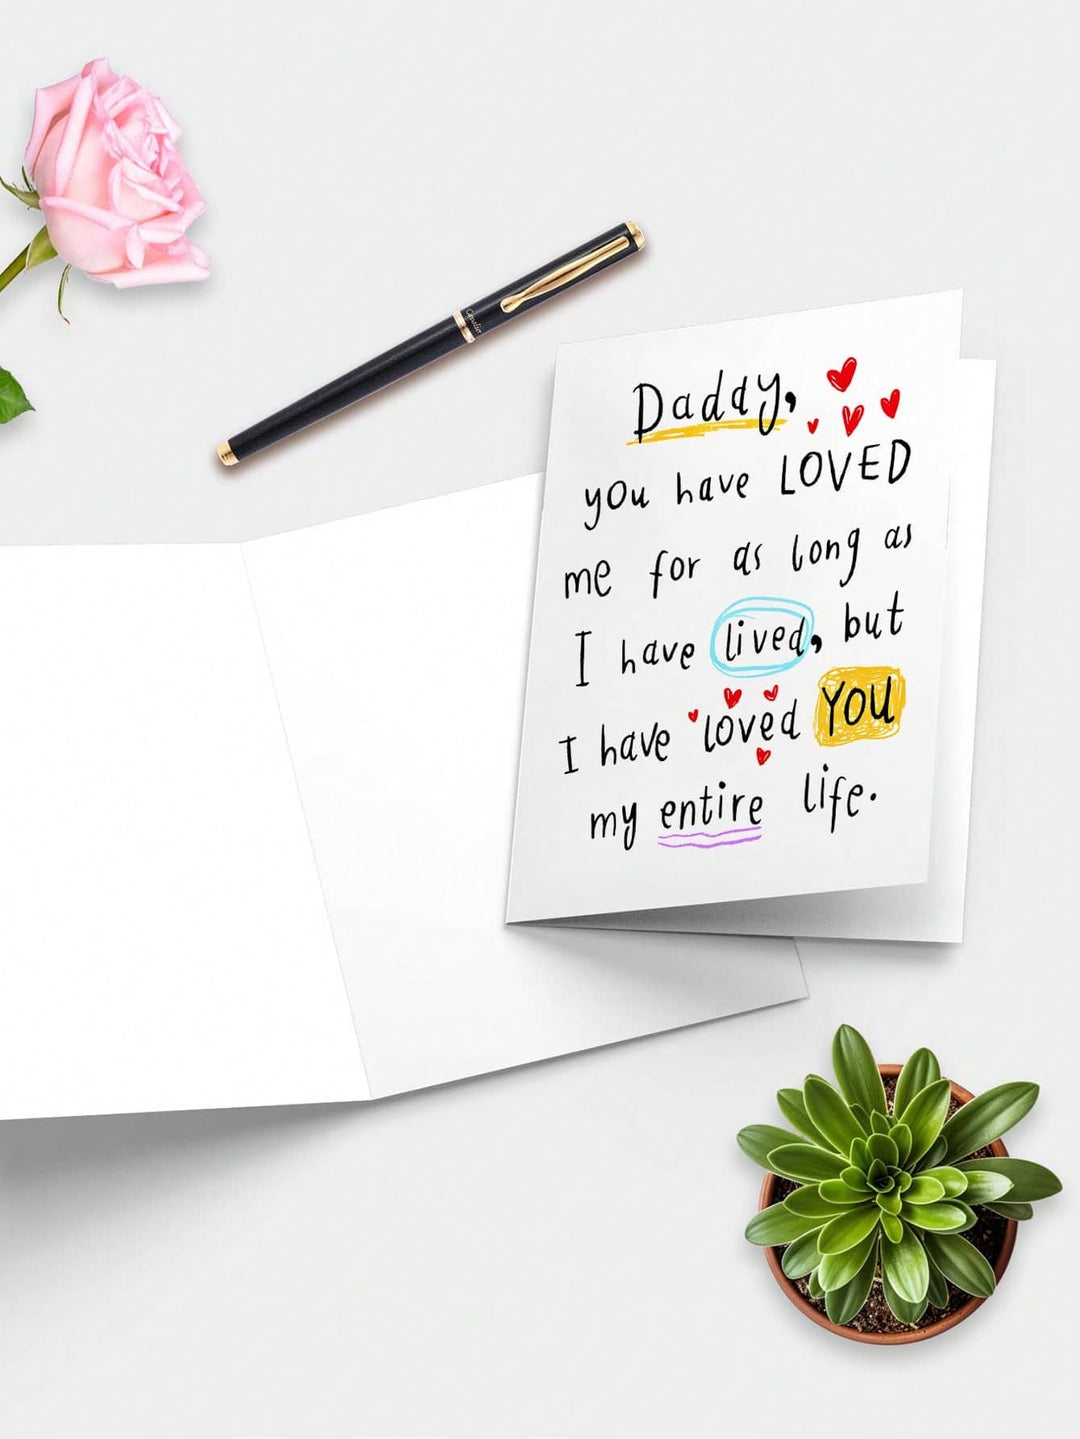 Daddy,
you have LOVED
me for as long as
I have lived, but
I have loved YOU
my entire life.